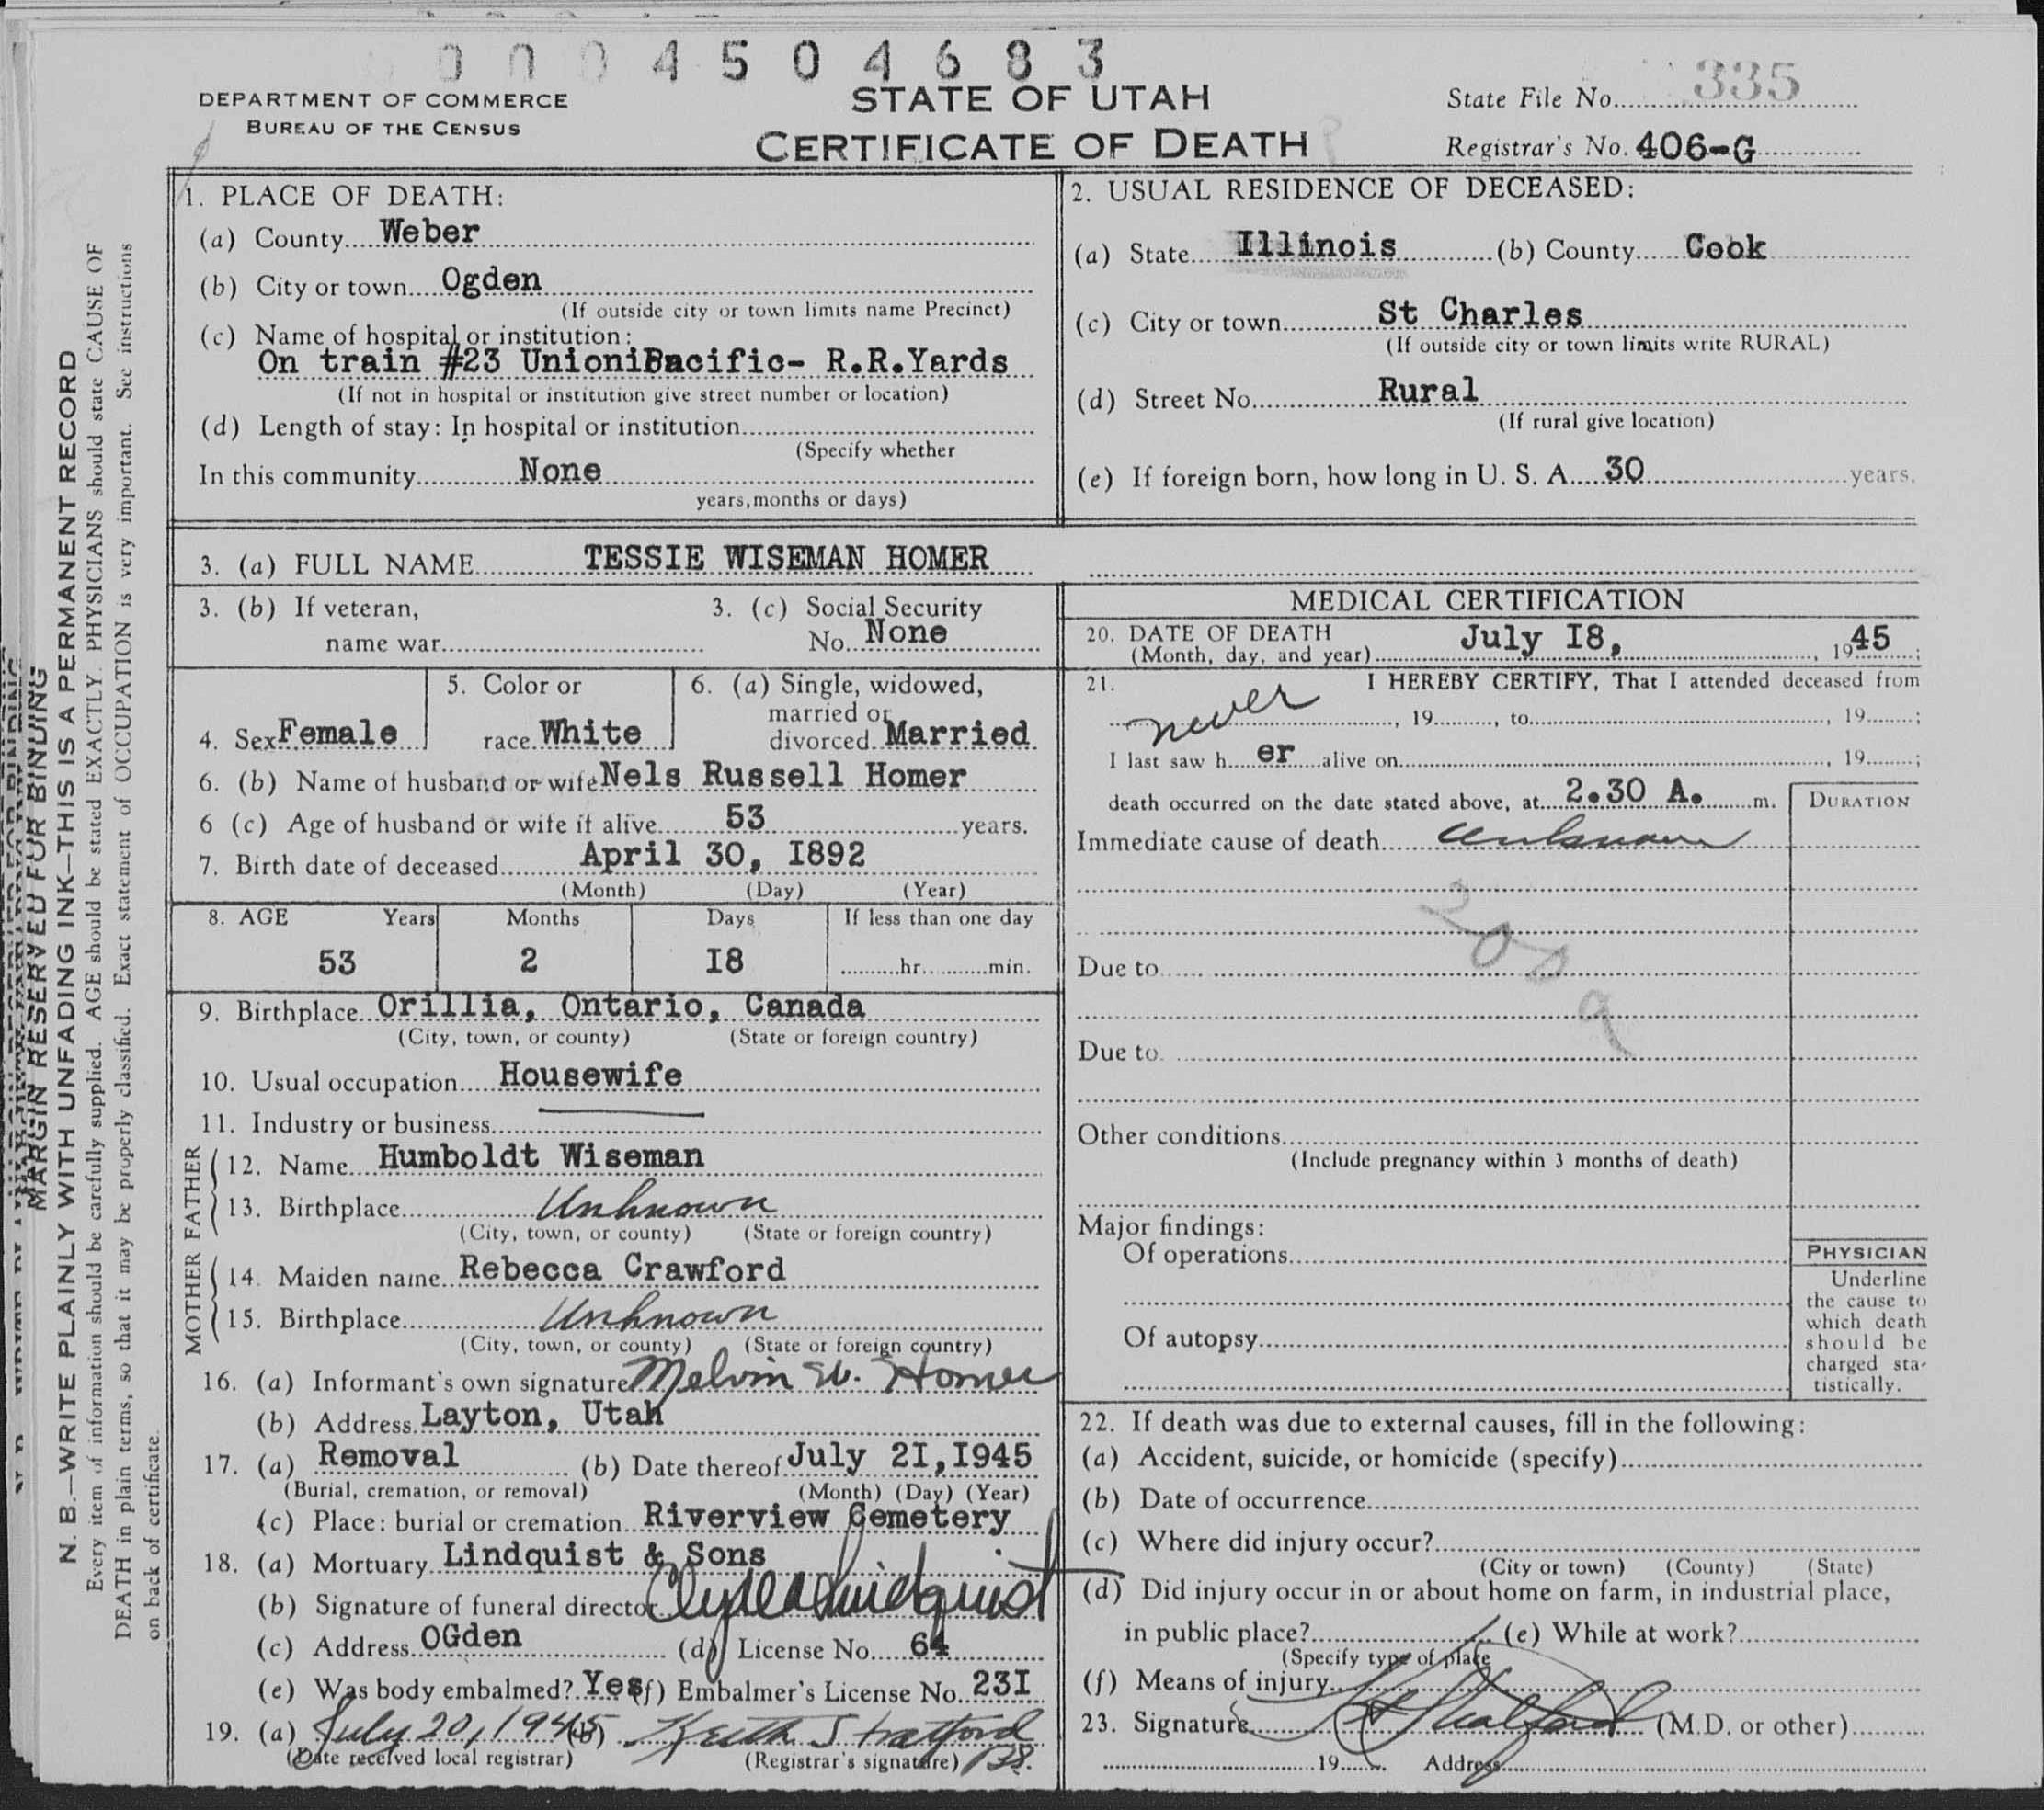 0 0 0 4 5 0 4 6 8 3
DEPARTMENT OF COMMERCE
BUREAU OF THE CENSUS
STATE OF UTAH
CERTIFICATE OF DEATH
State File No. 335
Registrar's No. 406-G
MARGIN RESERVED FOR BINDING
N. B.—WRITE PLAINLY WITH UNFADING INK—THIS IS A PERMANENT RECORD
Every item of information should be carefully supplied. AGE should be stated EXACTLY. PHYSICIANS should state CAUSE OF
DEATH in plain terms, so that it may be properly classified. Exact statement of OCCUPATION is very important. See instructions
on back of certificate.
1. PLACE OF DEATH:
(a) County Weber
(b) City or town Ogden
(If outside city or town limits name Precinct)
(c) Name of hospital or institution:
On train #23 UnioniPacific- R.R.Yards
(If not in hospital or institution give street number or location)
(d) Length of stay: In hospital or institution
(Specify whether
In this community None
years, months or days)
2. USUAL RESIDENCE OF DECEASED:
(a) State Illinois (b) County Cook
(c) City or town St Charles
(If outside city or town limits write RURAL)
(d) Street No. Rural
(If rural give location)
(e) If foreign born, how long in U. S. A. 30 years.
3. (a) FULL NAME TESSIE WISEMAN HOMER
3. (b) If veteran,
name war
3. (c) Social Security
No. None
4. Sex Female
5. Color or
race White
6. (a) Single, widowed,
married or
divorced Married
6. (b) Name of husband or wife Nels Russell Homer
6 (c) Age of husband or wife if alive 53 years.
7. Birth date of deceased April 30, I892
(Month) (Day) (Year)
8. AGE Years Months Days If less than one day
53 2 I8 hr. min.
9. Birthplace Orillia, Ontario, Canada
(City, town, or county) (State or foreign country)
10. Usual occupation Housewife
11. Industry or business
FATHER
12. Name Humboldt Wiseman
13. Birthplace Unknown
(City, town, or county) (State or foreign country)
MOTHER
14. Maiden name Rebecca Crawford
15. Birthplace Unknown
(City, town, or county) (State or foreign country)
16. (a) Informant's own signature Melvin W. Homer
(b) Address Layton, Utah
17. (a) Removal (b) Date thereof July 2I, I945
(Burial, cremation, or removal) (Month) (Day) (Year)
(c) Place: burial or cremation Riverview Cemetery
18. (a) Mortuary Lindquist & Sons
(b) Signature of funeral director Clyde Lindquist
(c) Address OGden (d) License No. 64
(e) Was body embalmed? Yes (f) Embalmer's License No. 23I
19. (a) July 20, 1945 (b) Keith Stratford
(Date received local registrar) (Registrar's signature)
MEDICAL CERTIFICATION
20. DATE OF DEATH
(Month, day, and year) July I8, 1945;
21. I HEREBY CERTIFY, That I attended deceased from
never, 19, to, 19;
I last saw h er alive on, 19;
death occurred on the date stated above, at 2.30 A. m.
DURATION
Immediate cause of death unknown
200
9
Due to
Due to
Other conditions
(Include pregnancy within 3 months of death)
Major findings:
Of operations
Of autopsy
PHYSICIAN
Underline
the cause to
which death
should be
charged sta-
tistically.
22. If death was due to external causes, fill in the following:
(a) Accident, suicide, or homicide (specify)
(b) Date of occurrence
(c) Where did injury occur?
(City or town) (County) (State)
(d) Did injury occur in or about home on farm, in industrial place,
in public place? (e) While at work?
(Specify type of place
(f) Means of injury
23. Signature Stratford (M.D. or other)
19 Address